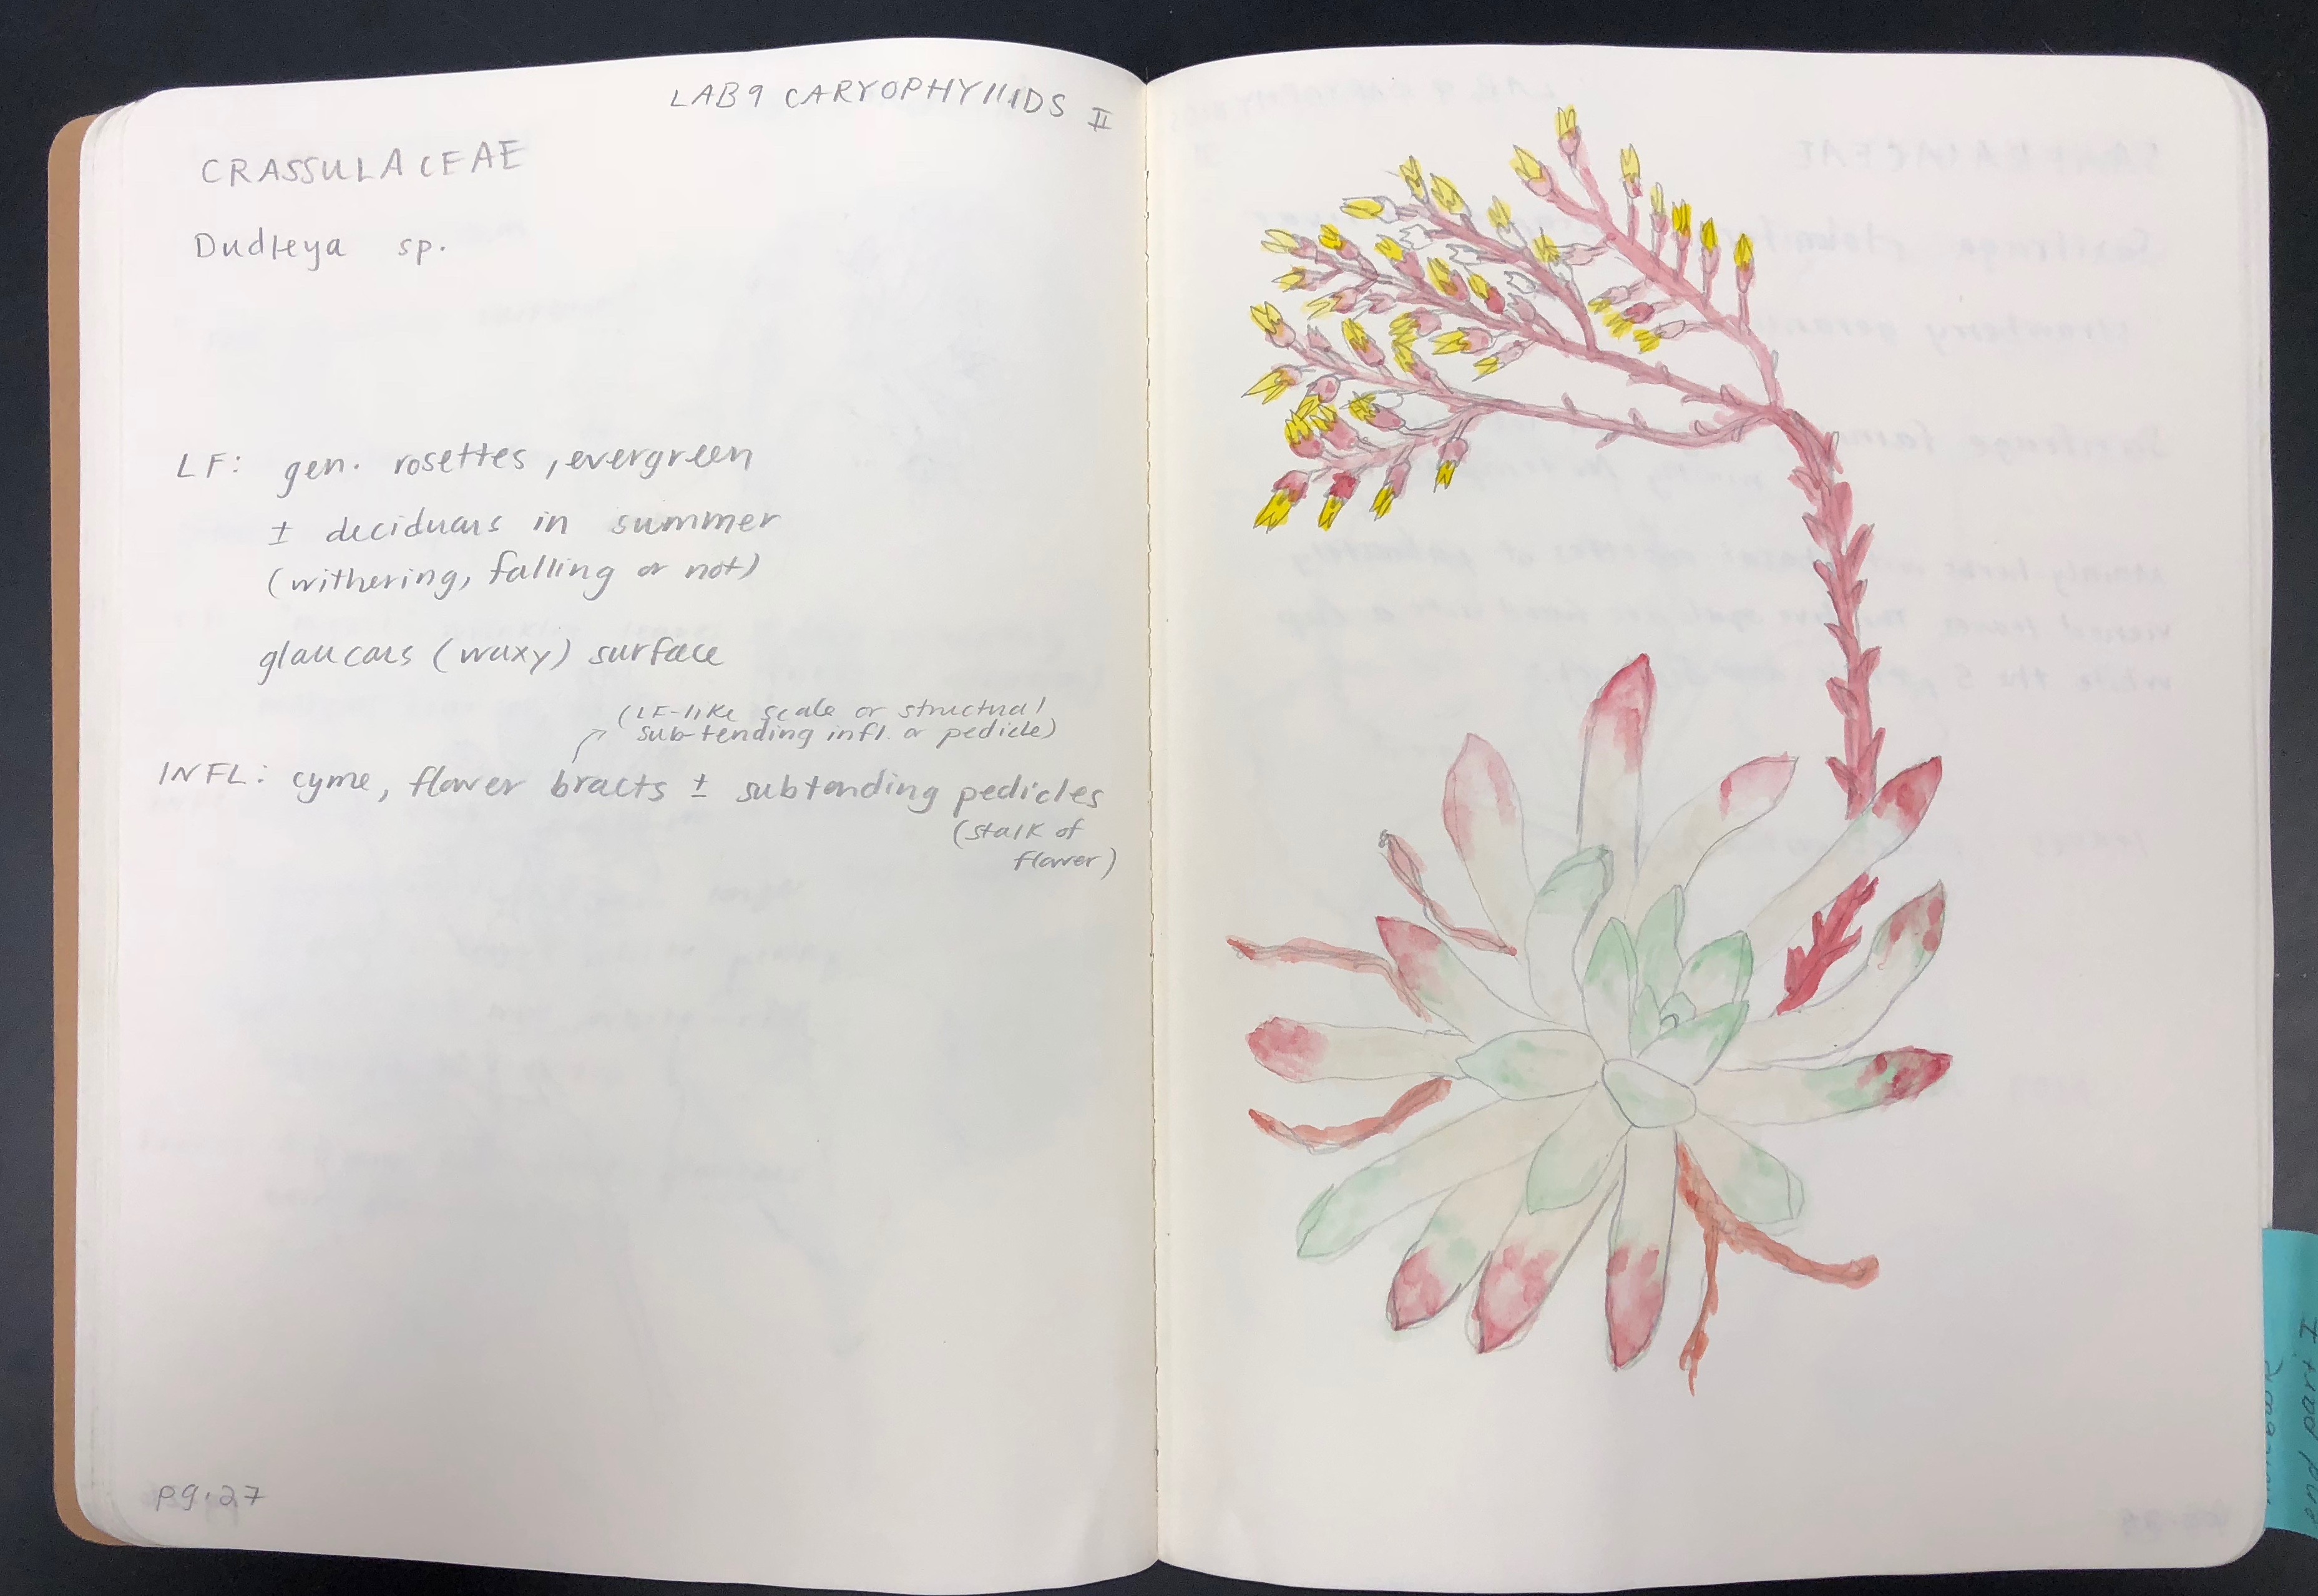 LAB 9 CARYOPHYllIDS II
CRASSULACEAE
Dudleya sp.
LF: gen. rosettes, evergreen
± deciduous in summer
(withering, falling or not)
glaucous (waxy) surface
(LF-like scale or structural
sub-tending infl. or pedicle)
INFL: cyme, flower bracts ± subtending pedicles
(stalk of
flower)
pg. 27
end part I